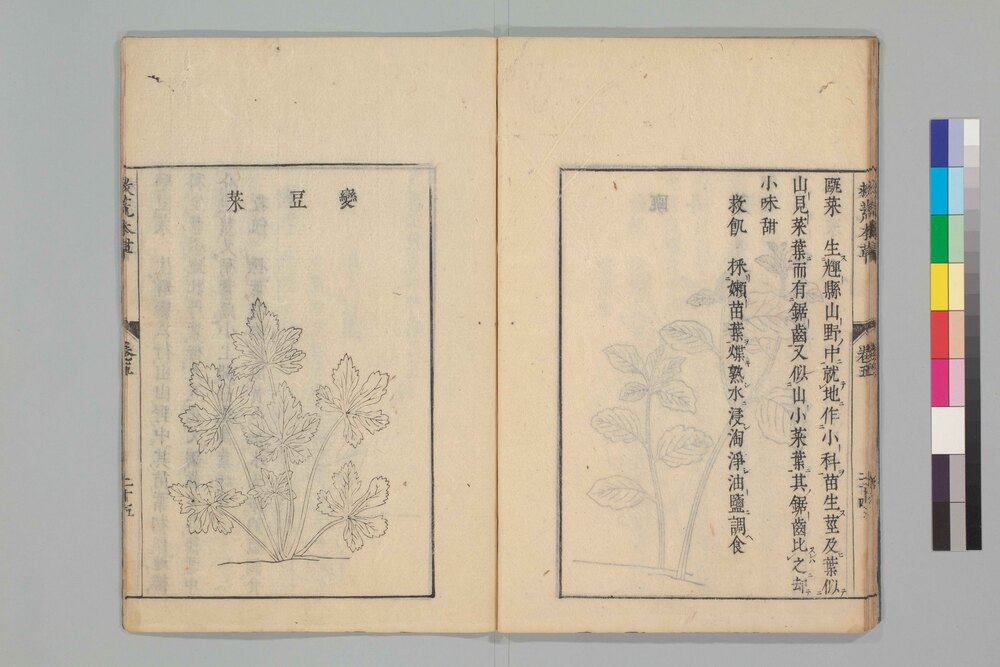 救荒本草
卷五
二十四
匭菜 生輝縣山野中就地作小科苗生莖及葉似
山見菜葉而有鋸齒又似山小菜葉其鋸齒比之却
小味甜
救飢 採嫩苗葉煠熟水浸淘淨油鹽調食
變豆菜
救荒本草
卷五
二十五